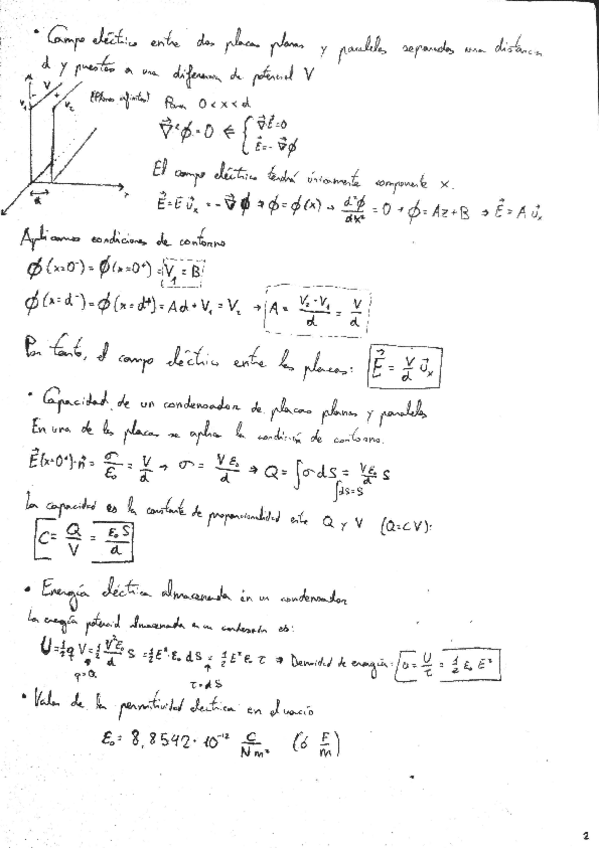 • Campo eléctrico entre dos placas planas y paralelas separadas una distancia
d y puestas a una diferencia de potencial V
(Planos infinitos) Para 0<x<d
V₁ V V₂ d x
∇²ϕ=0 ⇐ { ∇E=0
E=-∇ϕ
El campo eléctrico tendrá únicamente componente x.
E=E uₓ = -∇ϕ → ϕ=ϕ(x) → d²ϕ/dx² = 0 → ϕ=Az+B → E=A uₓ
Aplicamos condiciones de contorno
ϕ(x=0⁻)=ϕ(x=0⁺)=V₁=B
ϕ(x=d⁻)=ϕ(x=d⁺)=Ad+V₁=V₂ → A= (V₂-V₁)/d = V/d
Por tanto, el campo eléctrico entre las placas: E = V/d uₓ
• Capacidad de un condensador de placas planas y paralelas
En una de las placas se aplica la condición de contorno:
E(x=0⁺)·n = σ/ε₀ = V/d → σ = Vε₀/d → Q=∫σdS = Vε₀/d S
∫dS=S
La capacidad es la constante de proporcionalidad entre Q y V (Q=CV):
C= Q/V = ε₀S/d
• Energía eléctrica almacenada en un condensador
La energía potencial almacenada en un condensador es:
U=½qV=½ V²ε₀/d S =½E²·ε₀ dS = ½E²ε₀τ → Densidad de energía: u= U/τ = ½ ε₀E²
q=Q τ=dS
• Valor de la permitividad eléctrica en el vacío
ε₀ = 8,8542·10⁻¹² C/Nm² (ó F/m)
2